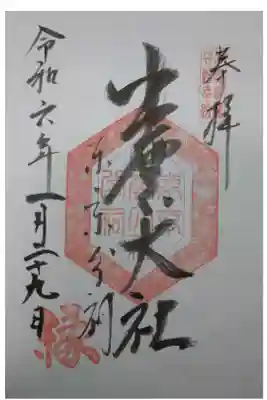 奉拝
出雲大社
東京分祠
令和六年一月二十九日
縁